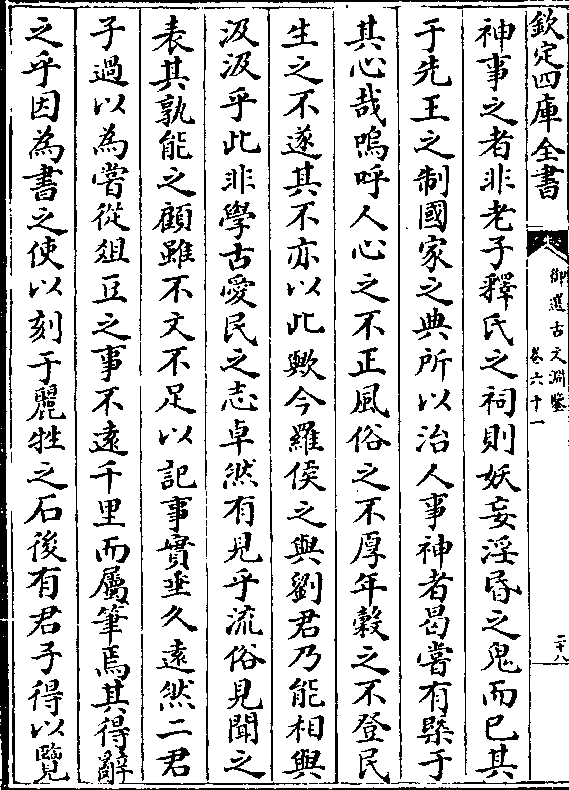 欽定四庫全書
御選古文淵鑒
卷六十一
二十八
神事之者非老子釋氏之祠則妖妄淫昏之鬼而已其
于先王之制國家之典所以治人事神者曷嘗有槩于
其心哉嗚呼人心之不正風俗之不厚年穀之不登民
生之不遂其不亦以此歟今羅侯之與劉君乃能相與
汲汲乎此非學古愛民之志卓然有見乎流俗見聞之
表其孰能之顧雖不文不足以記事實垂久遠然二君
子過以為嘗從俎豆之事不遠千里而屬筆焉其得辭
之乎因為書之使以刻于麗牲之石後有君子得以覽